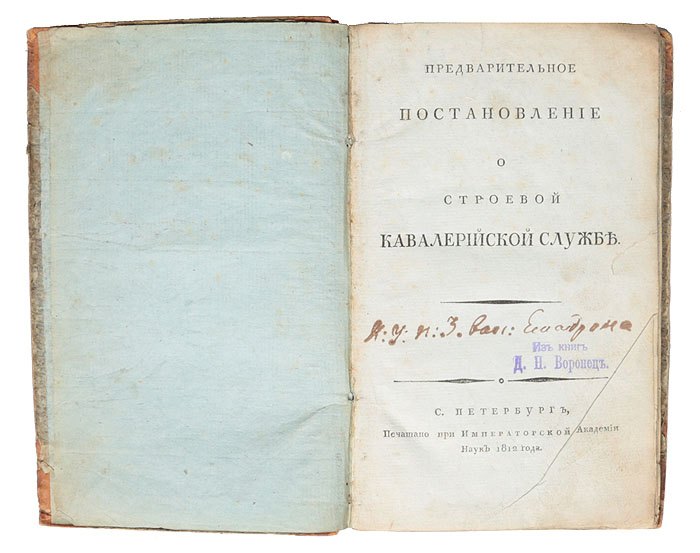 ПРЕДВАРИТЕЛЬНОЕ
ПОСТАНОВЛЕНІЕ
О
СТРОЕВОЙ
КАВАЛЕРІЙСКОЙ СЛУЖБѢ.
Л: У: п: З. вап: Ескадрона
Изъ книгъ
Д. П. Воронецъ.
С. ПЕТЕРБУРГЪ,
Печатано при ИМПЕРАТОРСКОЙ Академіи
Наукъ 1812 года.